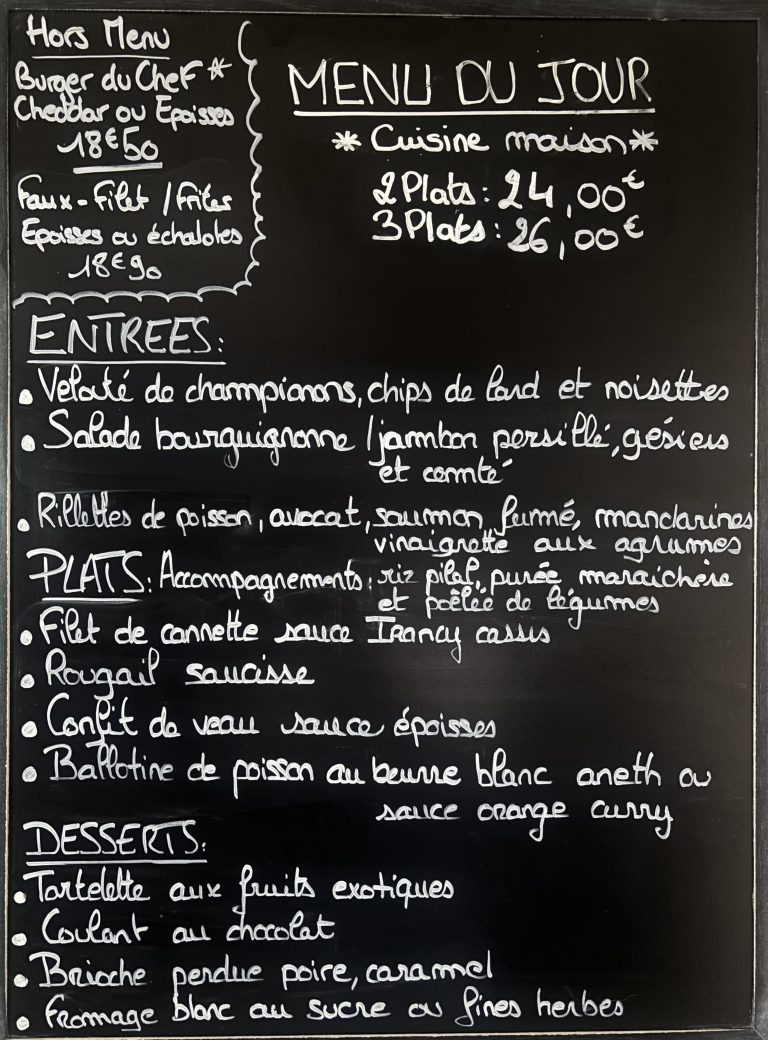 Hors Menu
Burger du Chef *
Cheddar ou Epoisses
18€50
Faux-Filet / Frites
Epoisses ou échalotes
18€90
MENU DU JOUR
* Cuisine maison *
2 Plats : 24,00€
3 Plats : 26,00€
ENTREES :
• Velouté de champignons, chips de lard et noisettes
• Salade bourguignonne / jambon persillé, gésiers
et comté
• Rillettes de poisson, avocat, saumon fumé, mandarines
vinaigrette aux agrumes
PLATS : Accompagnements : riz pilaf, purée maraîchère
et poêlée de légumes
• Filet de cannette sauce Irancy cassis
• Rougail saucisse
• Confit de veau sauce époisses
• Ballotine de poisson au beurre blanc aneth ou
sauce orange curry
DESSERTS :
• Tartelette aux fruits exotiques
• Coulant au chocolat
• Brioche perdue poire, caramel
• Fromage blanc au sucre ou fines herbes